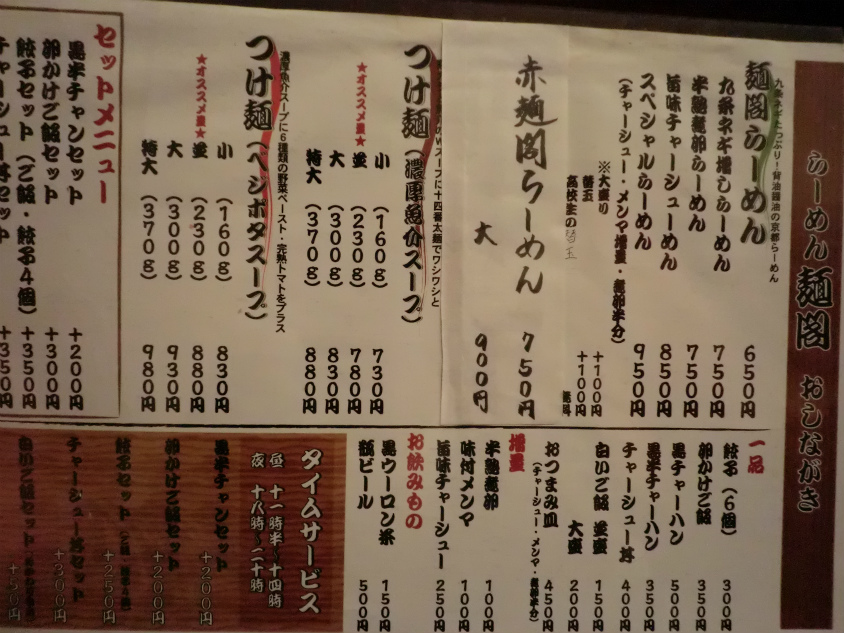 らーめん 麺閣 おしながき
九条ネギたっぷり!背油醤油の京都らーめん
麺閣らーめん 650円
九条ネギ増しらーめん 750円
半熟煮卵らーめん 750円
旨味チャーシューめん 850円
スペシャルらーめん 950円
(チャーシュー・メンマ増量・煮卵半分)
※大盛り +100円
替玉 +100円
高校生の替玉 無料
赤麺閣らーめん 750円
大 900円
Wスープに十四番太麺でワシワシと
つけ麺(濃厚魚介スープ)
小(160g) 730円
★オススメ量★ 並(230g) 780円
大(300g) 830円
特大(370g) 880円
濃厚魚介スープに6種類の野菜ペースト・完熟トマトをプラス
つけ麺(ベジポタスープ)
小(160g) 830円
★オススメ量★ 並(230g) 880円
大(300g) 930円
特大(370g) 980円
セットメニュー
黒半チャンセット +200円
卵かけご飯セット +300円
餃子セット(ご飯・餃子4個) +350円
チャーシュー丼セット +350円
一品
餃子(6個) 300円
卵かけご飯 350円
黒チャーハン 500円
黒半チャーハン 350円
チャーシュー丼 400円
白いご飯 並盛 150円
大盛 200円
おつまみ皿 450円
(チャーシュー・メンマ・煮卵半分)
増量
半熟煮卵 100円
味付メンマ 100円
旨味チャーシュー 250円
お飲みもの
黒ウーロン茶 150円
瓶ビール 500円
タイムサービス
昼 十一時半〜十四時
夜 十八時〜二十時
黒半チャンセット +200円
卵かけご飯セット +200円
餃子セット(ご飯・餃子4個) +250円
チャーシュー丼セット +300円
白いご飯セット +50円